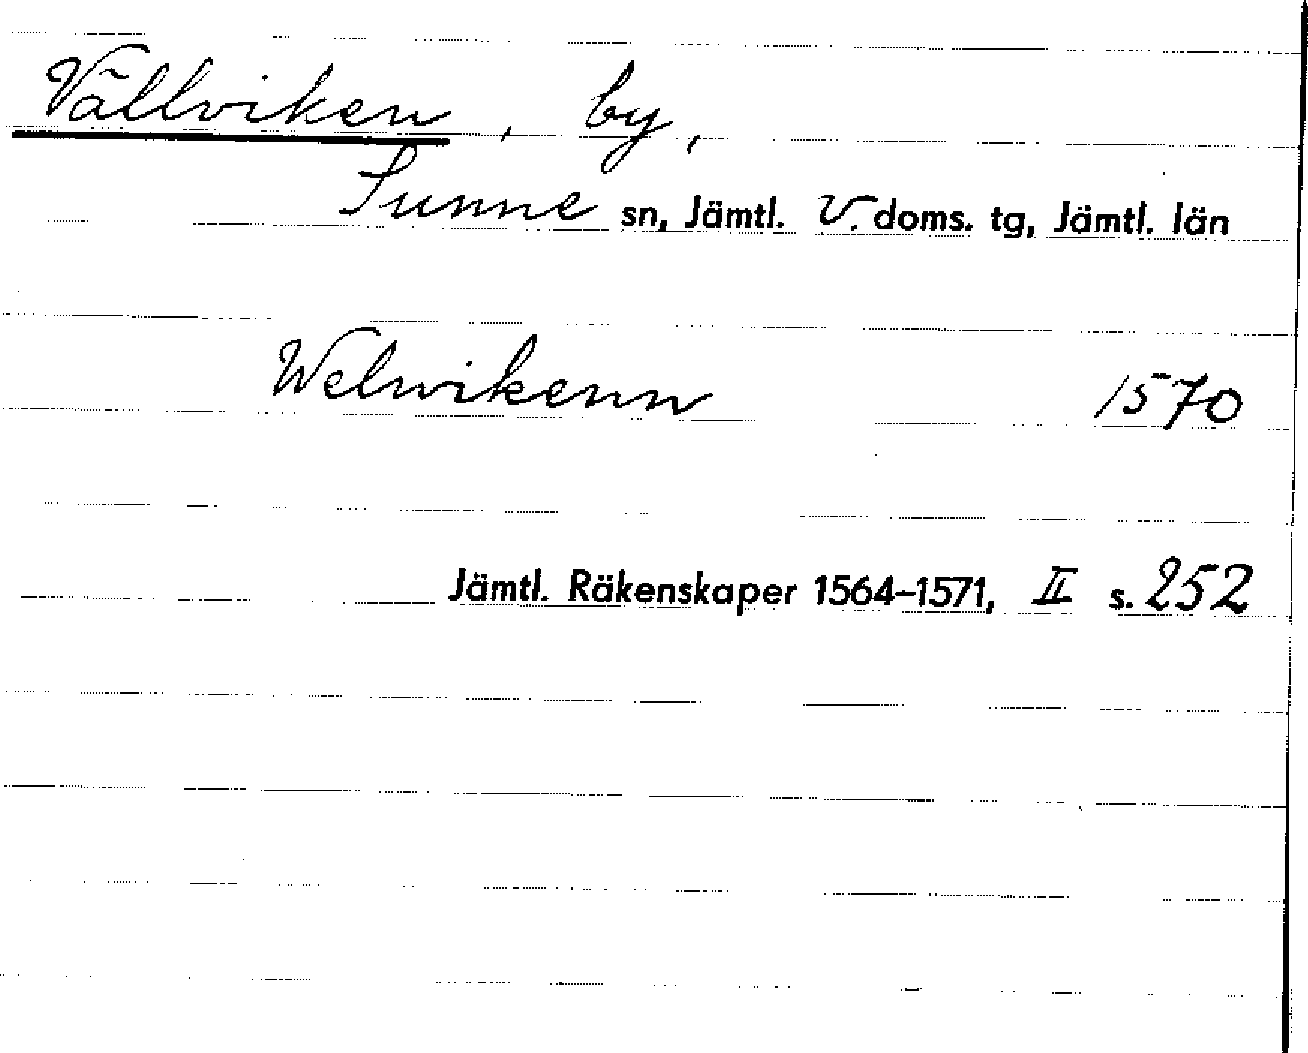 Vällviken, by,
Sunne sn, Jämtl. V. doms. tg, Jämtl. län
Welwikenn 1570
Jämtl. Räkenskaper 1564–1571, II s. 252